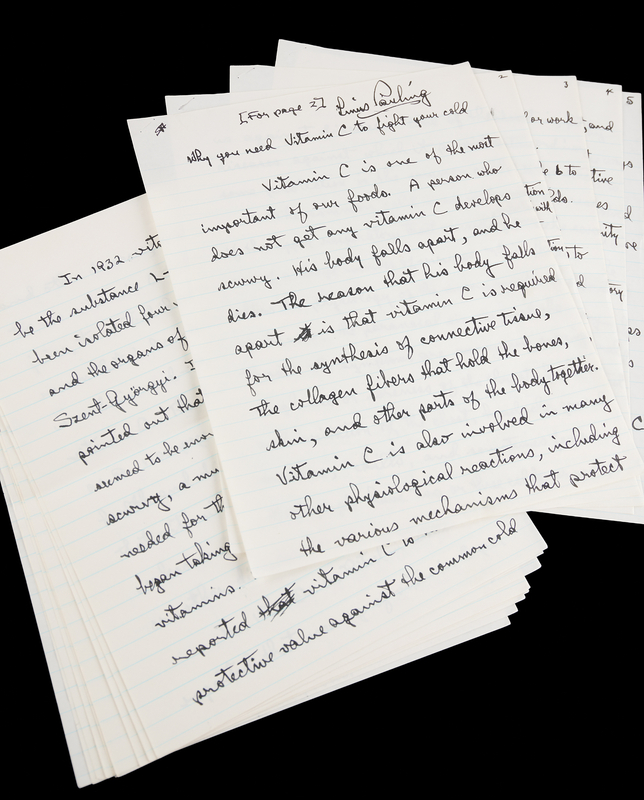 [For page 2] Linus Pauling
Why you need Vitamin C to fight your cold
Vitamin C is one of the most
important of our foods. A person who
does not get any vitamin C develops
scurvy. His body falls apart, and he
dies. The reason that his body falls
apart is that vitamin C is required
for the synthesis of connective tissue,
the collagen fibers that hold the bones,
skin, and other parts of the body together.
Vitamin C is also involved in many
other physiological reactions, including
the various mechanisms that protect
In 1932 vita
be the substance L-
been isolated four
and the organs of
Szent-Györgyi. I
pointed out that
seemed to be
scurvy, a
needed for th
began taking
vitamins.
reported that vitamin C is
protective value against the common cold
2
or work
to
tion
with
to
3
, and
tive
es
ity
d
ory
4
5
C